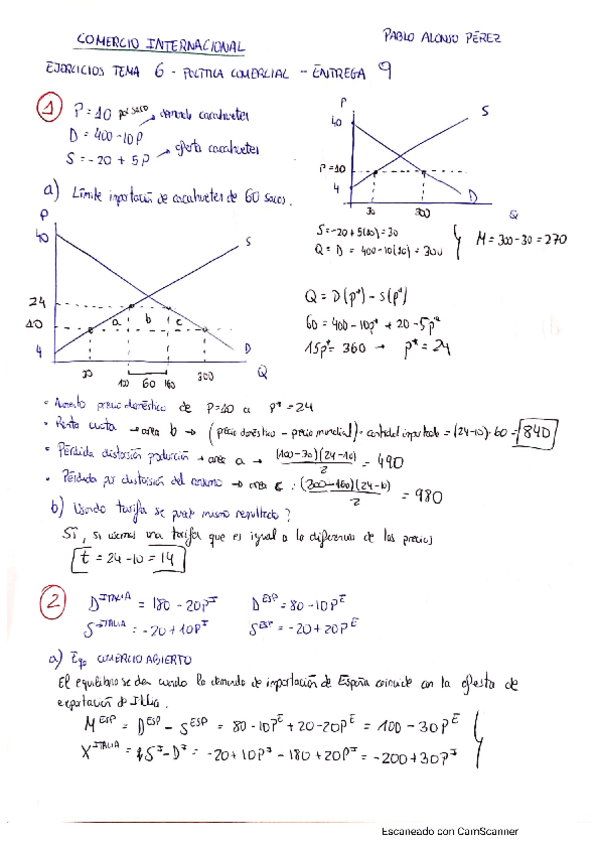 COMERCIO INTERNACIONAL
PABLO ALONSO PÉREZ
EJERCICIOS TEMA 6 - POLÍTICA COMERCIAL - ENTREGA 9
1
P = 10 por saco → demanda cacahuetes
D = 400 - 10P
S = -20 + 5P → oferta cacahuetes
P
40
S
P=10
4
30
300
D
Q
S = -20 + 5(10) = 30
Q = D = 400 - 10(10) = 300
M = 300 - 30 = 270
a) Límite importación de cacahuetes de 60 sacos.
P
40
S
24
10
4
a
b
c
D
30
100
60
160
300
Q
Q = D(p*) - S(p*)
60 = 400 - 10p* + 20 - 5p*
15p* = 360 → p* = 24
• Aumento precio doméstico de P=10 a p* = 24
• Renta cuota → area b → (precio doméstico - precio mundial) · cantidad importada = (24-10) · 60 = 840
• Pérdida distorsión producción → area a → (100-30)(24-10)/2 = 490
• Pérdida por distorsión del consumo → area c : (300-160)(24-10)/2 = 980
b) Usando tarifa se puede mismo resultado?
Sí, si usamos una tarifa que es igual a la diferencia de los precios
t = 24 - 10 = 14
2
D^ITALIA = 180 - 20P^I D^ESP = 80 - 10P^E
S^ITALIA = -20 + 10P^I S^ESP = -20 + 20P^E
a) Eqo COMERCIO ABIERTO
El equilibrio se da cuando la demanda de importación de España coincide con la oferta de
exportación de Italia.
M^ESP = D^ESP - S^ESP = 80 - 10P^E + 20 - 20P^E = 100 - 30P^E
X^ITALIA = S^I - D^I = -20 + 10P^I - 180 + 20P^I = -200 + 30P^I
Escaneado con CamScanner